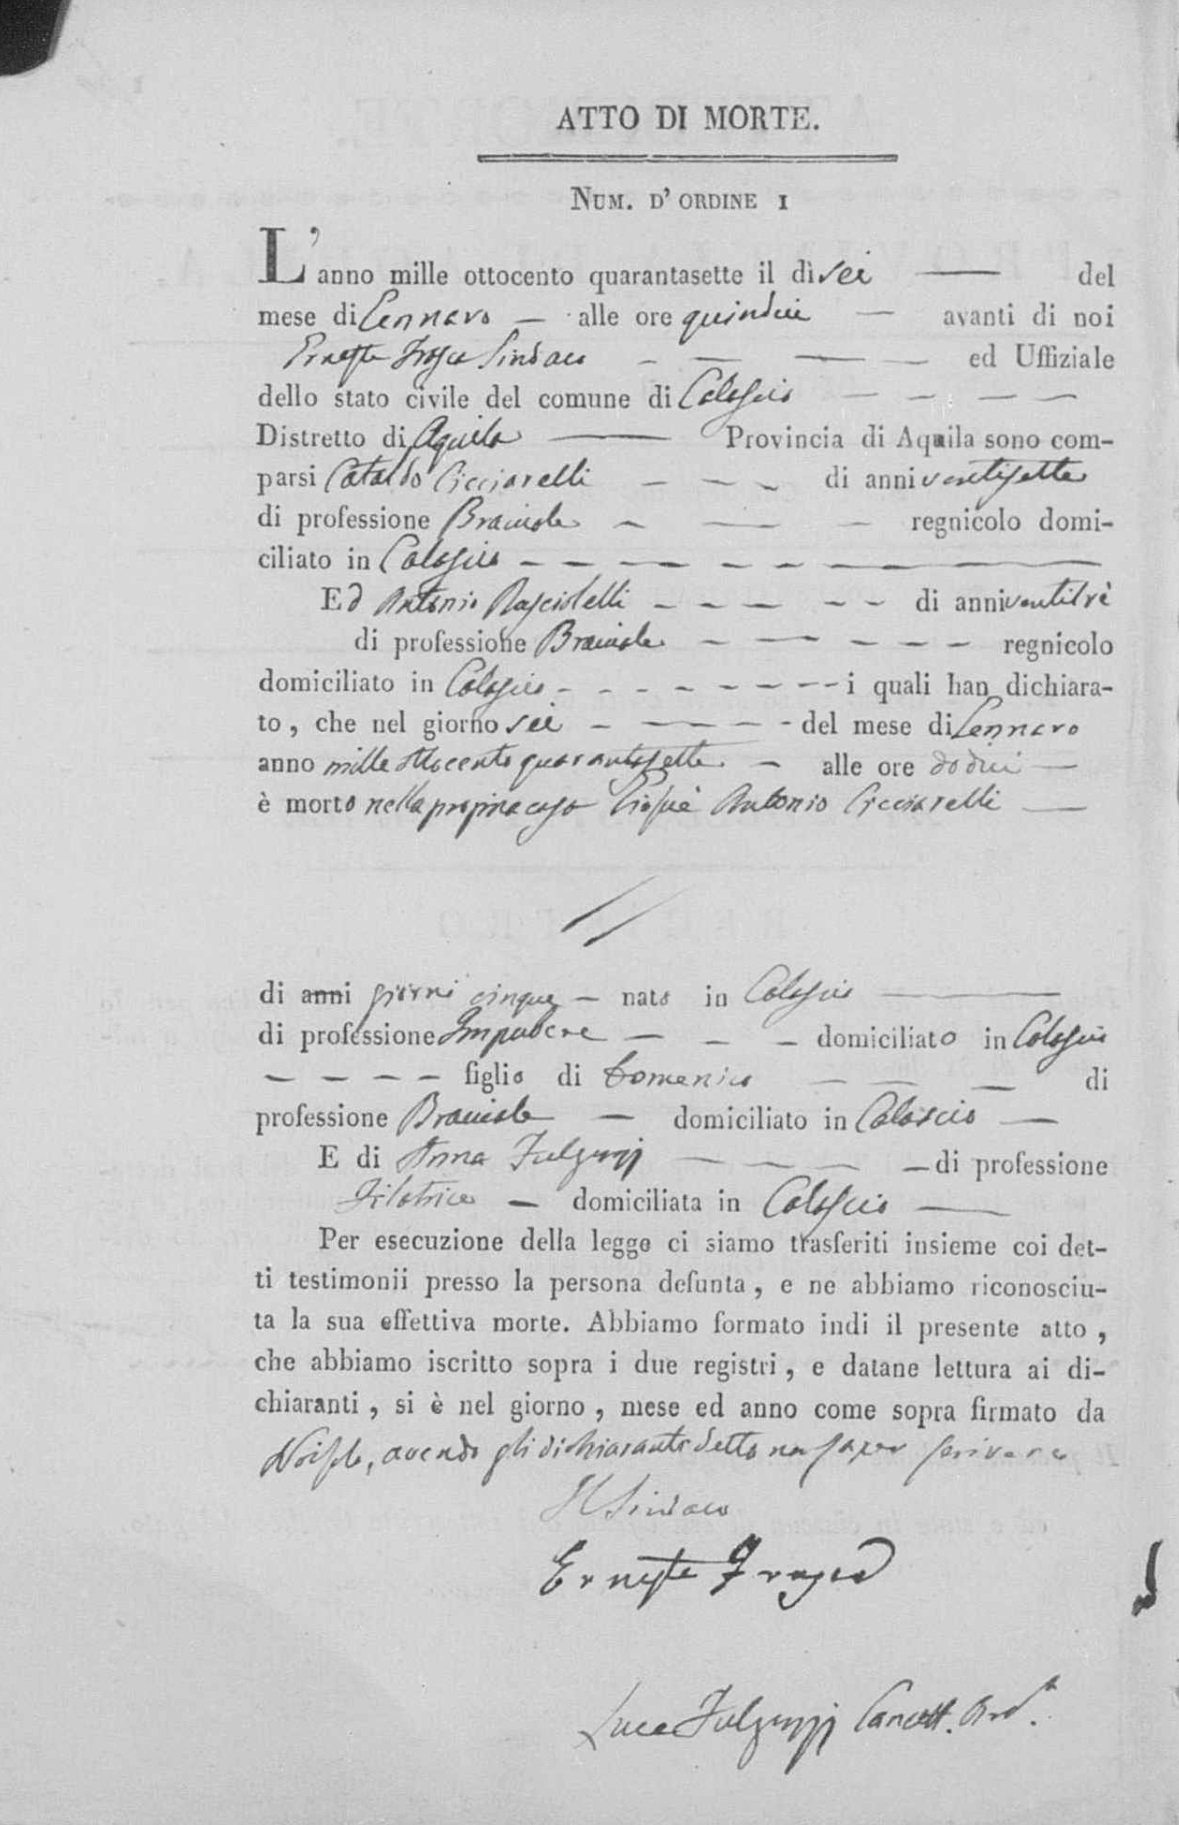 ATTO DI MORTE.
NUM. D' ORDINE 1
L'anno mille ottocento quarantasette il dì sei — del
mese di Gennaro — alle ore quindici — avanti di noi
Ernesto Sindaco — — — — ed Uffiziale
dello stato civile del comune di Colascio — — — —
Distretto di Aquila — Provincia di Aquila sono com-
parsi Cataldo Cicciarelli — — — di anni ventisette
di professione Bracciale — — — regnicolo domi-
ciliato in Calascio — — — — — — — — —
Ed Antonio Rasciotelli — — — — — di anni ventitrè
di professione Bracciale — — — — — — regnicolo
domiciliato in Calascio - - - - - - - - i quali han dichiara-
to, che nel giorno sei — — — — - del mese di Gennaro
anno mille ottocento quarantasette — alle ore dodici —
è morto nella propria casa Giosuè Antonio Cicciarelli —
di anni giorni cinque — nato in Colascio —
di professione Impubere — — — domiciliato in Colascio
— — — — figlio di Domenico — — — di
professione Bracciale — domiciliato in Calascio —
E di Anna Fulgenzj — — — — di professione
Filatrice — domiciliata in Colascio —
Per esecuzione della legge ci siamo trasferiti insieme coi det-
ti testimonii presso la persona defunta, e ne abbiamo riconosciu-
ta la sua effettiva morte. Abbiamo formato indi il presente atto,
che abbiamo iscritto sopra i due registri, e datane lettura ai di-
chiaranti, si è nel giorno, mese ed anno come sopra firmato da
Noi solo, avendo gli dichiaranti detto non saper scrivere
Il Sindaco
Ernesto
Luca Fulgenzj Cancell. Ard.